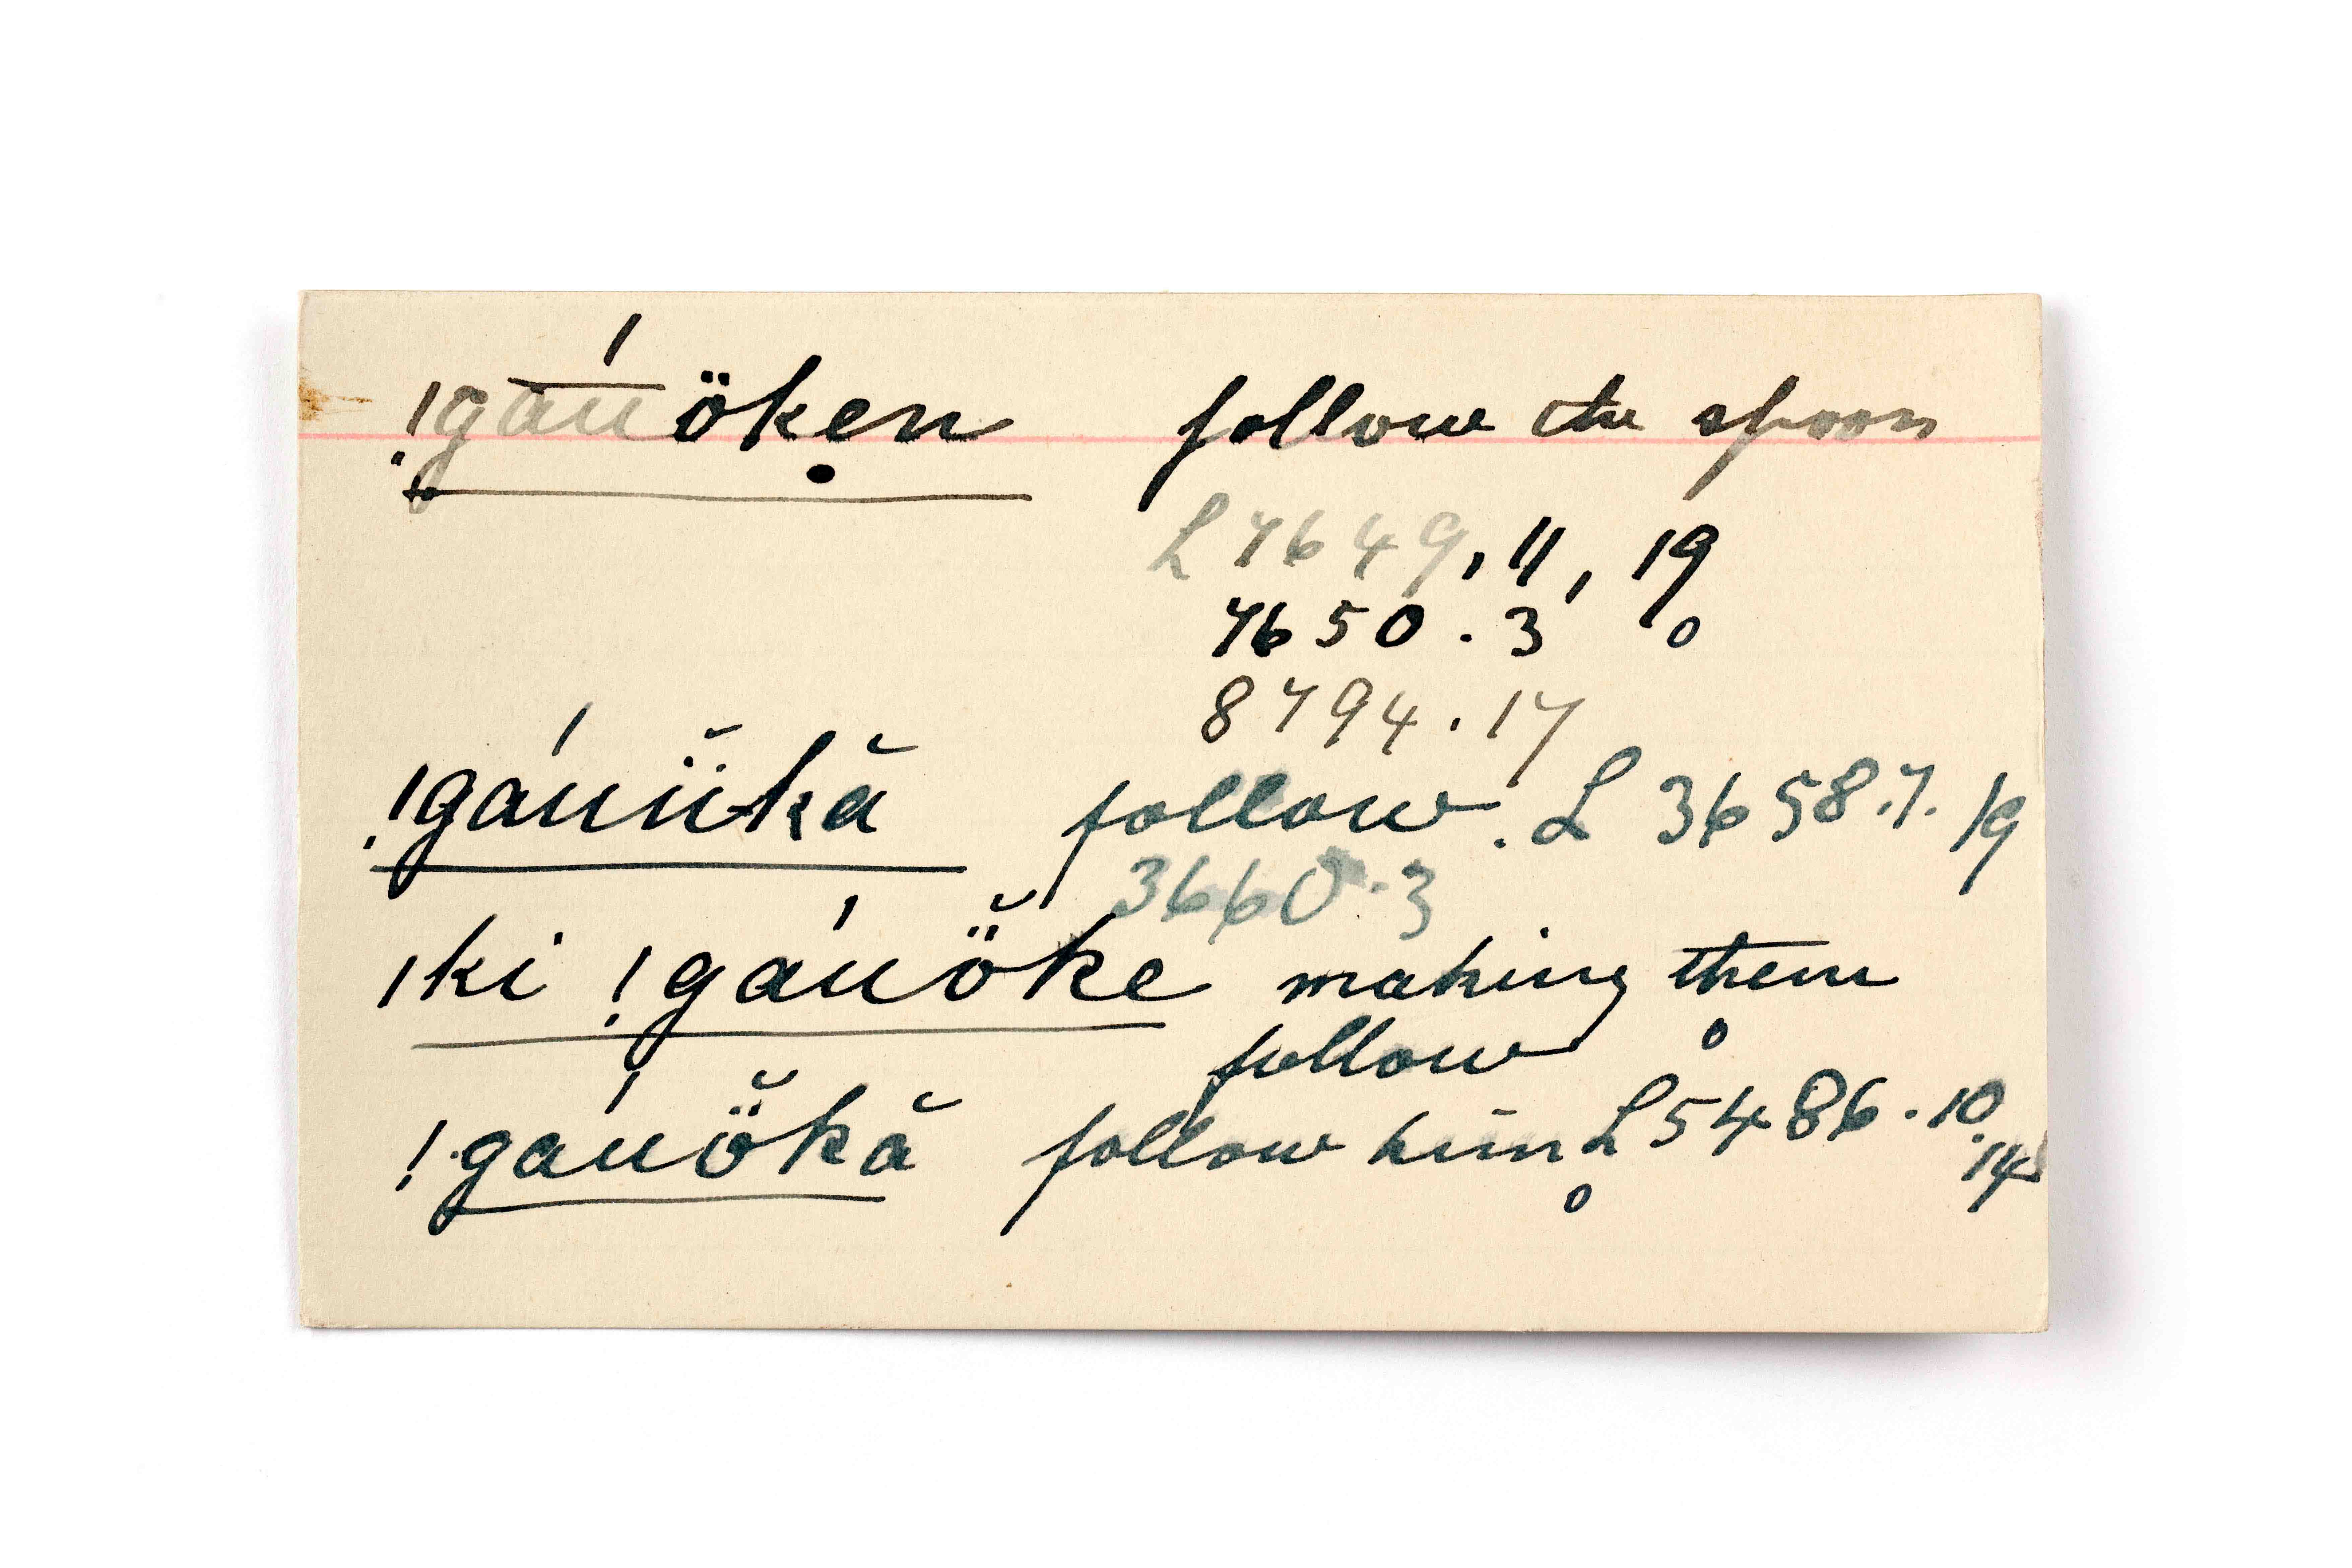 !gáuöken follow the spoor
L 7649, 11, 19
7650 . 3
8794 . 17
!gáuïkă follow . L 3658.7. 19
3660 . 3
|ki !gáuö̆ke making them
follow
!gáuö̆kă follow him L 5486 . 10
. 14